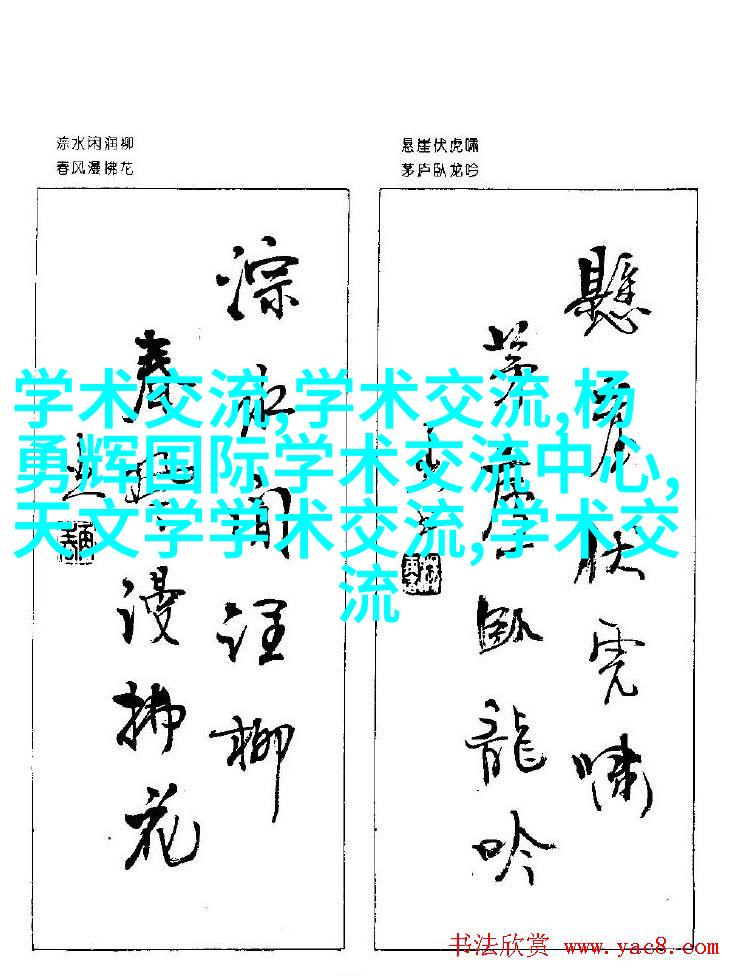 淙水闲润柳
春风漫拂花
悬崖伏虎啸
茅庐卧龙吟
淙水闲润柳
春风漫拂花
懸崖伏虎嘯
茅廬臥龍吟
学术交流,学术交流,杨
勇辉国际学术交流中心,
天文学学术交流,学术交
流
书法欣赏 www.yac8.com